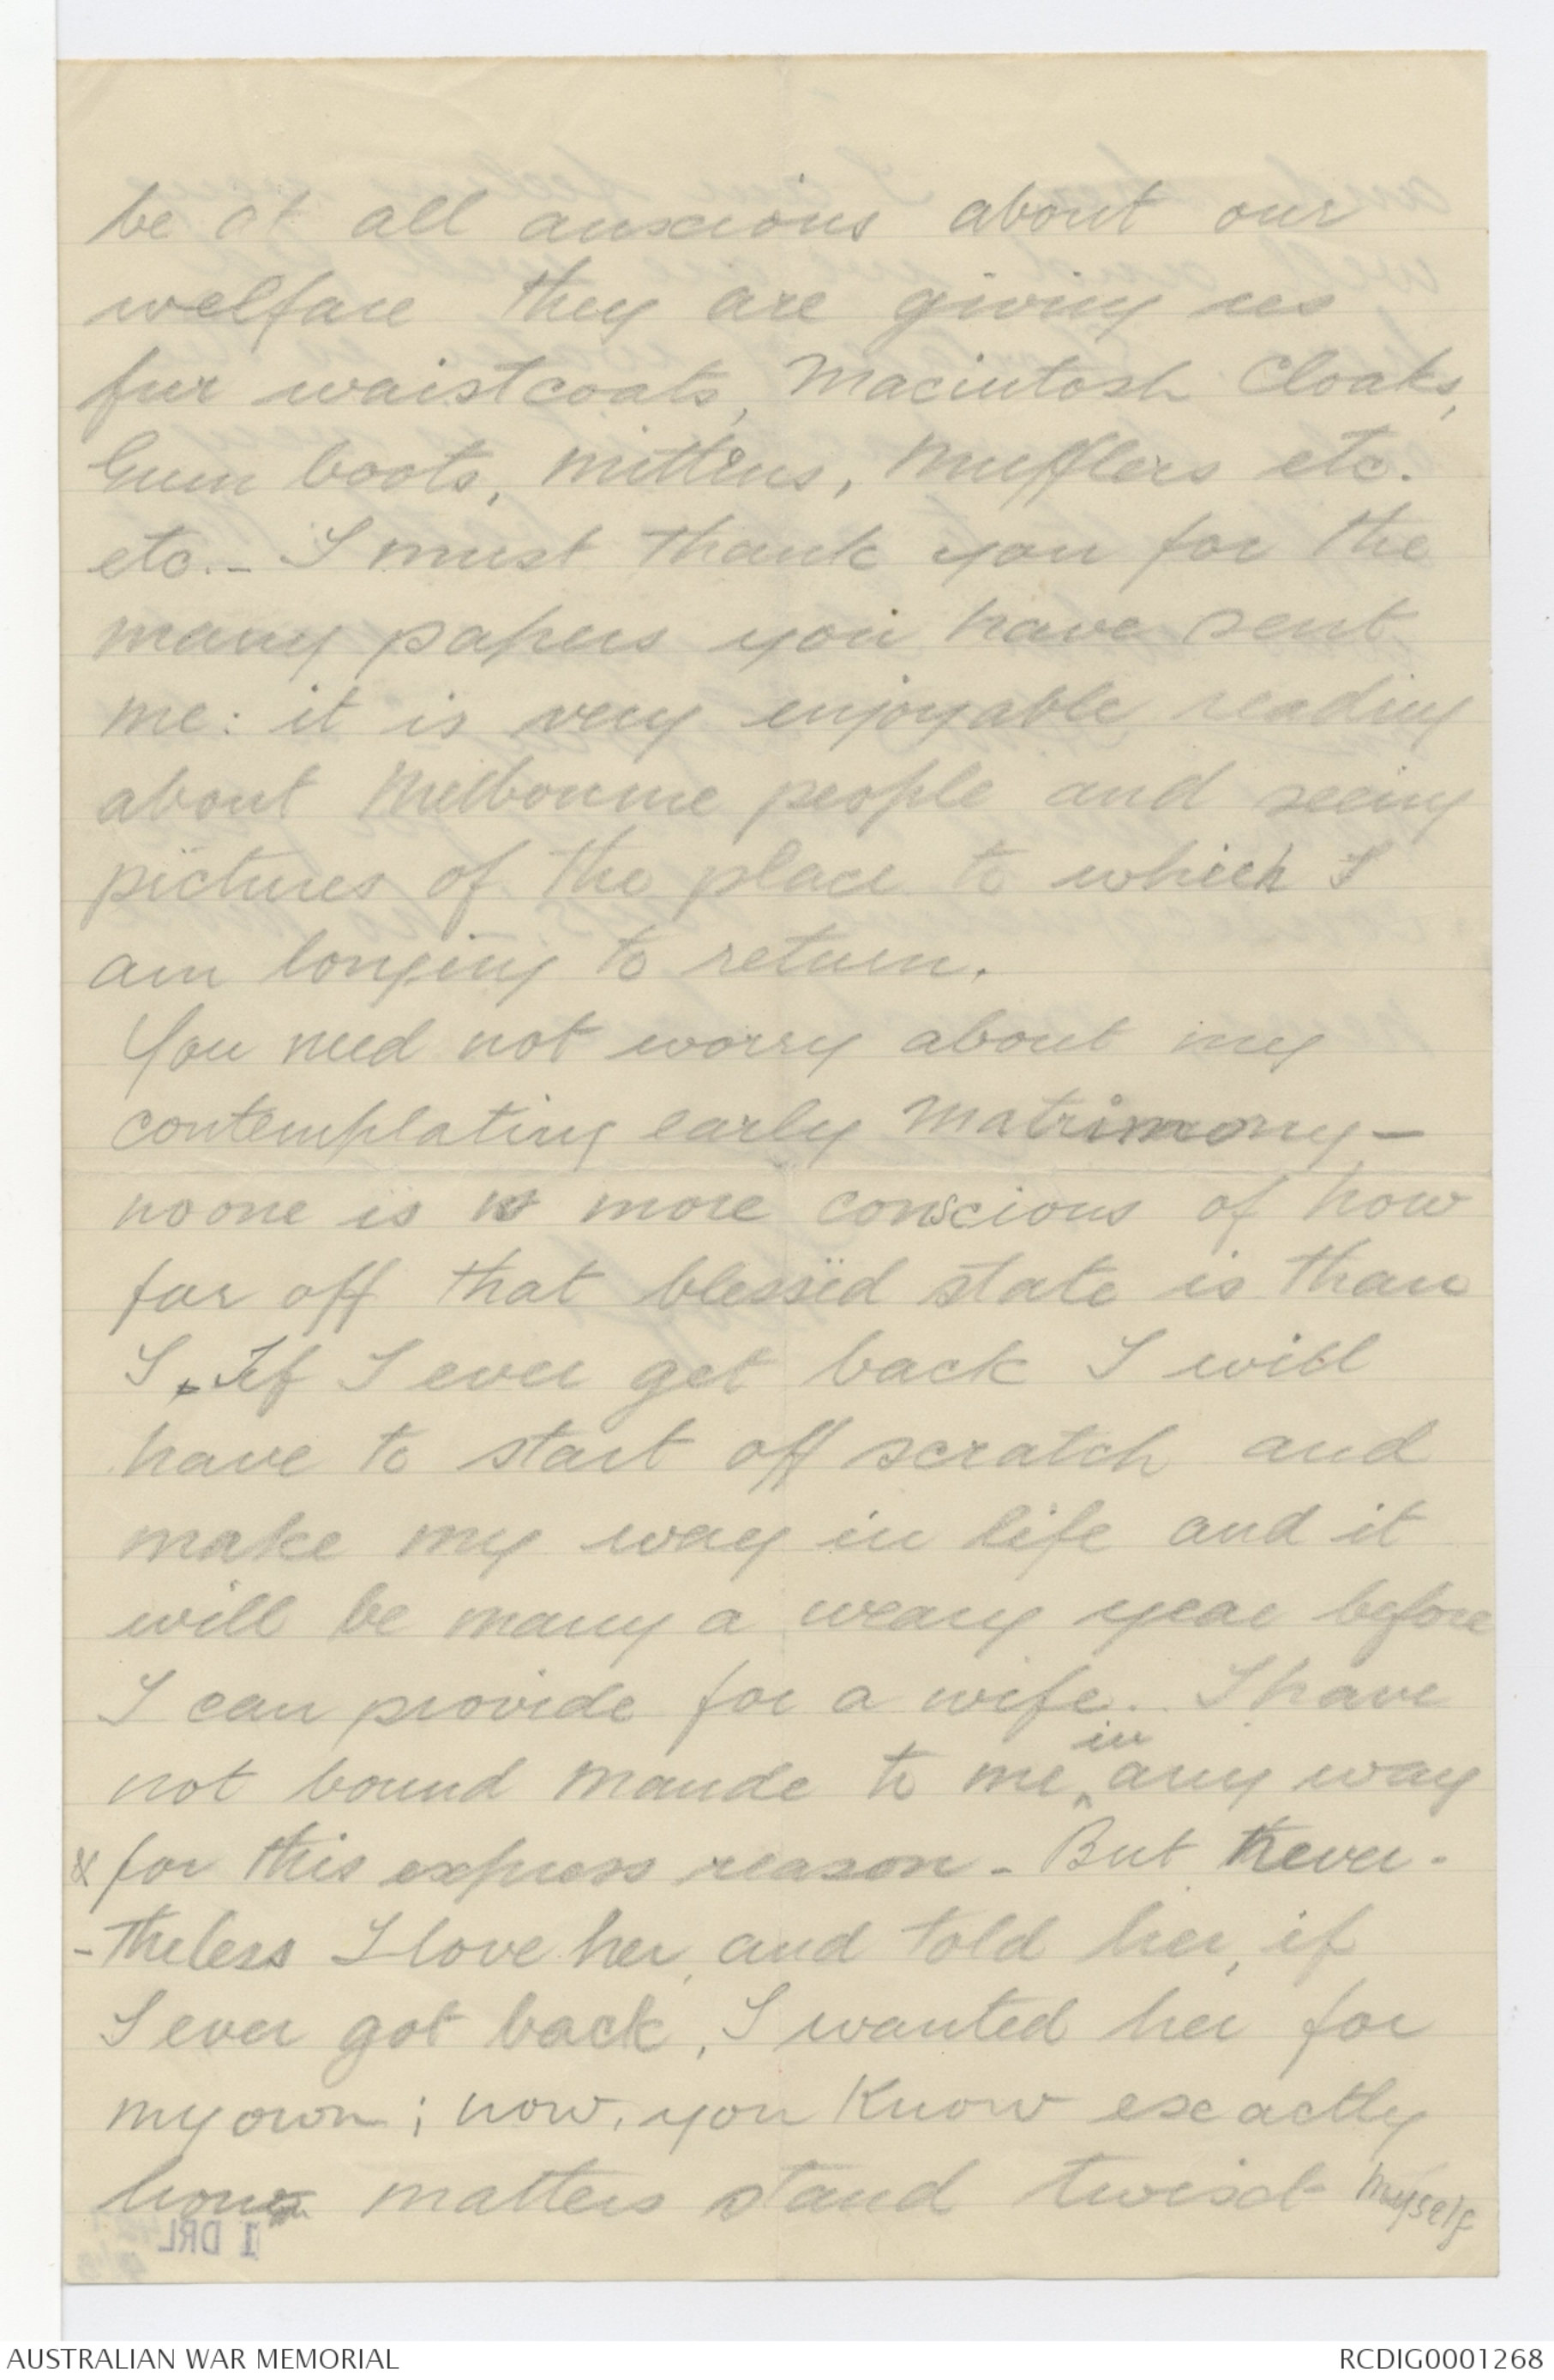 be at all anxious about our
welfare they are giving us
fur waistcoats, Macintosh Cloaks,
Gum boots, mittens, Mufflers etc.
etc. - I must thank you for the
many papers you have sent
me: it is very enjoyable reading
about Melbourne people and seeing
pictures of the place to which I
am longing to return.
You need not worry about my
contemplating early Matrimony -
no one is more conscious of how
far off that blessed state is than
I. If I ever get back I will
have to start off scratch and
make my way in life and it
will be many a weary year before
I can provide for a wife. I have
not bound Maude to me in any way
& for this express reason - But never-
-theless I love her, and told her, if
I ever got back, I wanted her for
my own; now, you know exactly
how matters stand twixt myself
1 DRL
AUSTRALIAN WAR MEMORIAL
RCDIG0001268